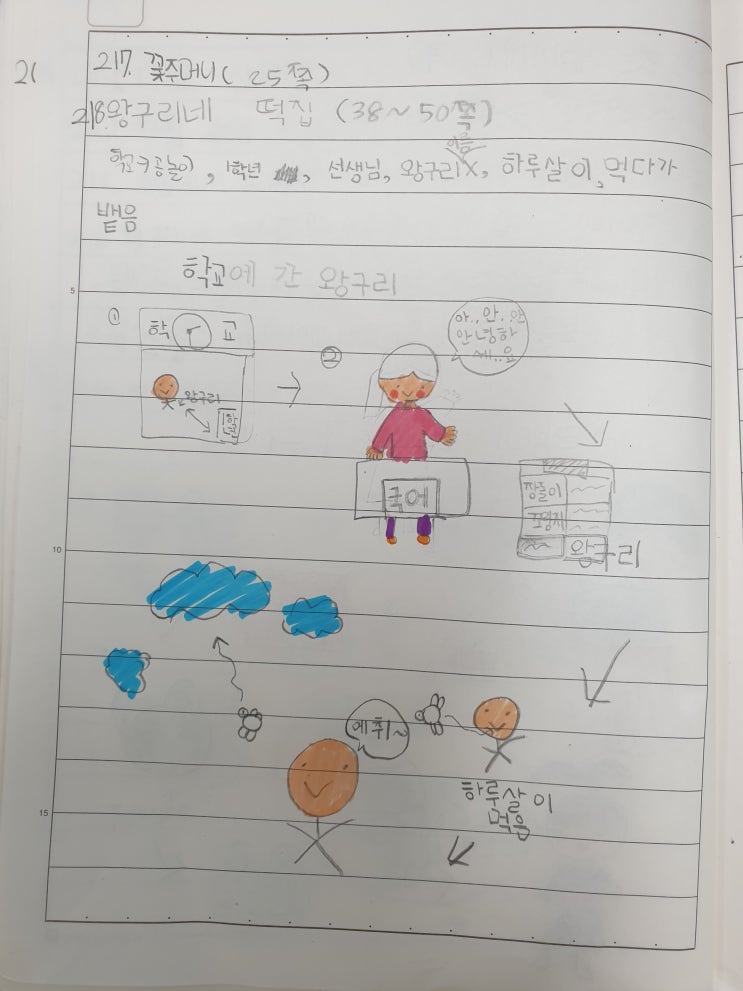 21
217. 꽃주머니( 25쪽)
218.왕구리네 떡집 (38~50쪽)
이름
학교 공놀이, 1학년, 선생님, 왕구리X, 하루살이, 먹다가
뱉음
학교에 간 왕구리
①
학 교
왕구리
1학년
②
아.. 안.. 안
안녕하
세..요
국어
장줄이
조영재
왕구리
에취~
하루살이
먹음
5
10
15